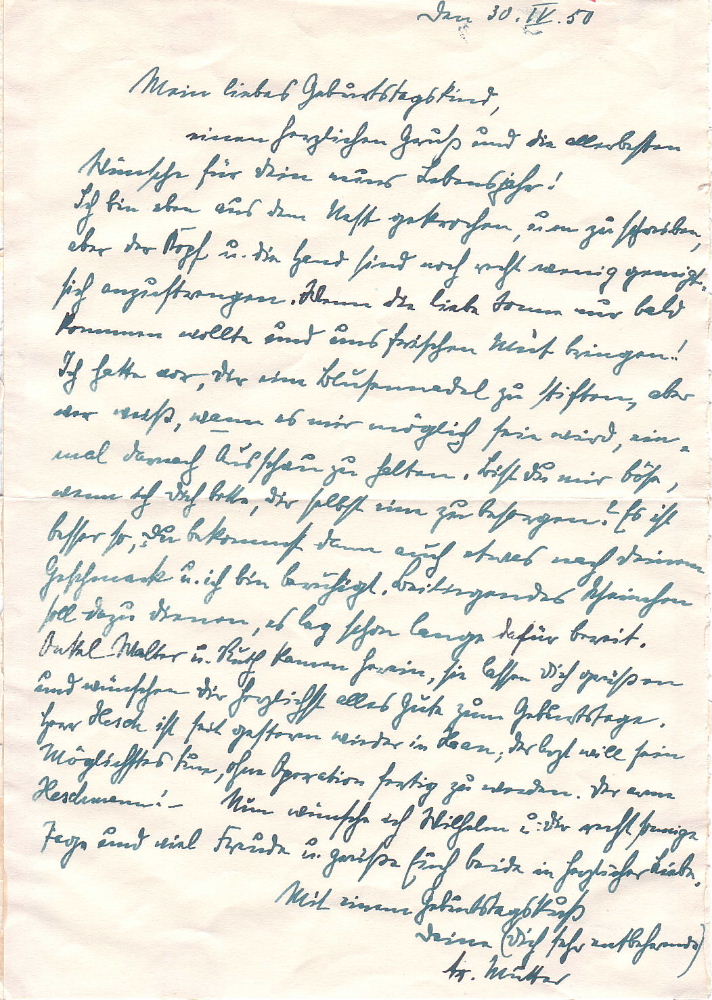 Den 30. IV. 50
Mein liebes Geburtstagskind,
einen herzlichen Gruß und die allerbesten
Wünsche für Dein neues Lebensjahr!
Ich bin eben aus dem Nest gekrochen, um zu schreiben,
aber der Kopf u. die Hand sind noch recht wenig geneigt
sich anzustrengen. Wenn die liebe Sonne nur bald
kommen wollte und uns frischen Mut bringen!
Ich hatte vor, Dir eine Blusennadel zu stiften, aber
wer weiß, wann es mir möglich sein wird, ein-
mal darnach Ausschau zu halten. Bist Du mir böse,
wenn ich Dich bitte, Dir selbst eine zu besorgen? Es ist
besser so, Du bekommst dann auch etwas nach Deinem
Geschmack u. ich bin beruhigt. Beiliegendes Scheinchen
soll dazu dienen, es lag schon lange dafür bereit.
Onkel Walter u. Ruth kamen herein, sie lassen Dich grüßen
und wünschen Dir herzlichst alles Gute zum Geburtstage.
Herr Hesch ist seit gestern wieder in Haan; der Arzt will sein
Möglichstes tun, ohne Operation fertig zu werden. Der arme
Heschmann! – Nun wünsche ich Wilhelm u. Dir recht sonnige
Tage und viel Freude u. grüße Euch beide in herzlicher Liebe.
Mit einem Geburtstagskuß
Deine (Dich sehr entbehrende)
Mutter